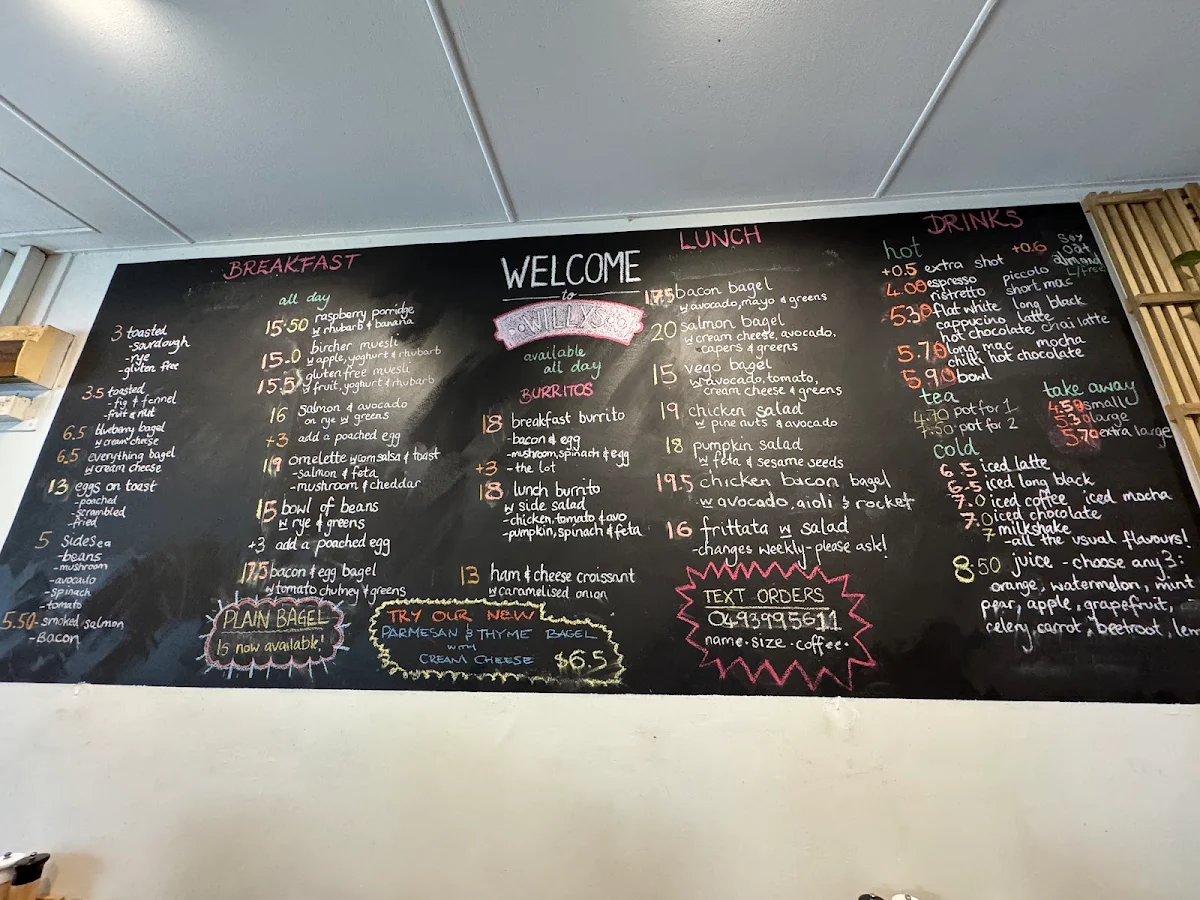 BREAKFAST
3 toasted
-sourdough
-rye
-gluten free
3.5 toasted
-fig & fennel
-fruit & nut
6.5 blueberry bagel
w cream cheese
6.5 everything bagel
w cream cheese
13 eggs on toast
-poached
-scrambled
-fried
5 sides ea
-beans
-mushroom
-avocado
-spinach
-tomato
5.50 -smoked salmon
-Bacon
all day
15.50 raspberry porridge
w rhubarb & banana
15.0 bircher muesli
w apple, yoghurt & rhubarb
15.5 gluten free muesli
w fruit, yoghurt & rhubarb
16 salmon & avocado
on rye w greens
+3 add a poached egg
19 omelette w corn salsa & toast
-salmon & feta
-mushroom & cheddar
15 bowl of beans
w rye & greens
+3 add a poached egg
17.5 bacon & egg bagel
w tomato chutney & greens
PLAIN BAGEL
is now available!
WELCOME
to
WILLYS
available
all day
BURRITOS
18 breakfast burrito
-bacon & egg
-mushroom, spinach & egg
+3 - the lot
18 lunch burrito
w side salad
-chicken, tomato & avo
-pumpkin, spinach & feta
13 ham & cheese croissant
w caramelised onion
TRY OUR NEW
PARMESAN & THYME BAGEL
WITH
CREAM CHEESE $6.5
LUNCH
17.5 bacon bagel
w avocado, mayo & greens
20 salmon bagel
w cream cheese, avocado,
capers & greens
15 vego bagel
w avocado, tomato,
cream cheese & greens
19 chicken salad
w pine nuts & avocado
18 pumpkin salad
w feta & sesame seeds
19.5 chicken bacon bagel
w avocado, aioli & rocket
16 frittata w salad
-changes weekly-please ask!
TEXT ORDERS
0493995611
name·size·coffee·
DRINKS
hot
+0.5 extra shot
+0.6 Soy
oat
almond
L/free
4.00 espresso piccolo
ristretto short mac
5.30 flat white long black
cappucino latte
hot chocolate chai latte
5.70 long mac mocha
chilli hot chocolate
5.90 bowl
tea
4.70 pot for 1
7.50 pot for 2
take away
4.50 small
5.30 large
5.70 extra large
cold
6.5 iced latte
6.5 iced long black
7.0 iced coffee iced mocha
7.0 iced chocolate
7 milkshake
-all the usual flavours!
8.50 juice - choose any 3:
orange, watermelon, mint
pear, apple, grapefruit,
celery, carrot, beetroot,